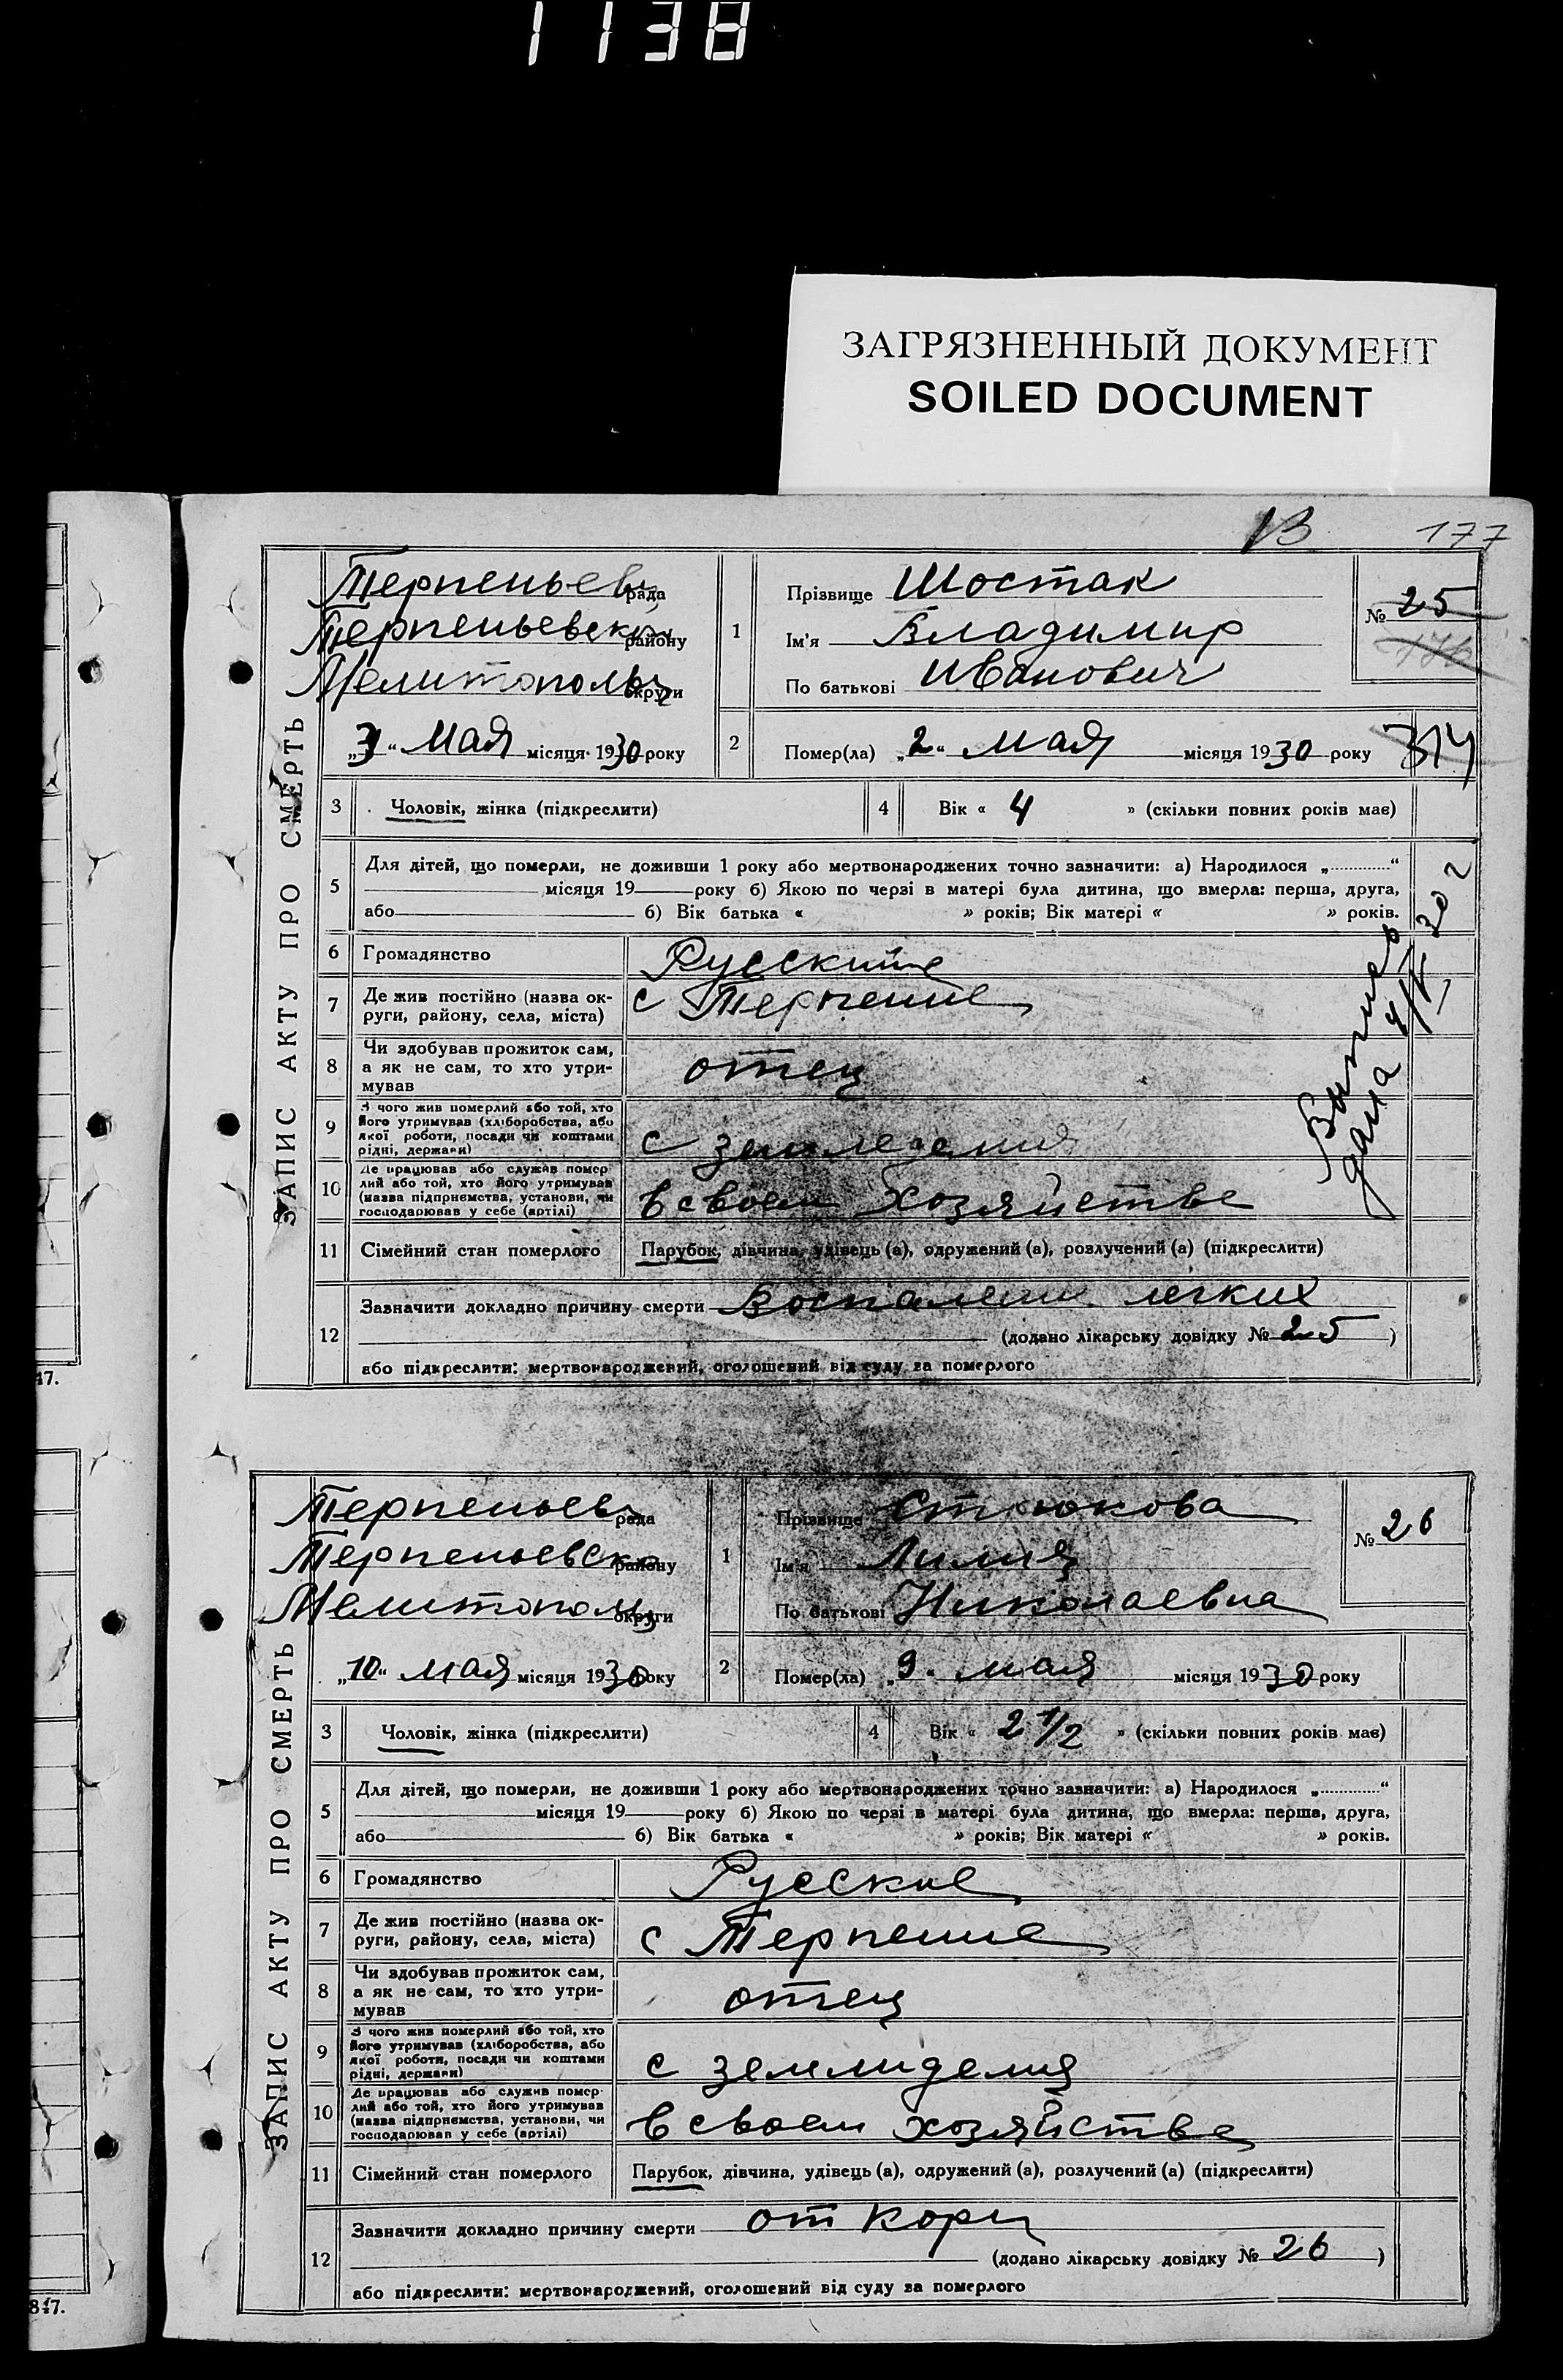 1138
ЗАГРЯЗНЕННЫЙ ДОКУМЕНТ
SOILED DOCUMENT
177
ЗАПИС АКТУ ПРО СМЕРТЬ
Терпеньев рада
Терпеньевск району
Мелитополь округи
„3“ Мая місяця 1930 року
1
Прізвище Шостак
Ім'я Владимир
По батькові Иванович
№ 25
176
2
Помер(ла) „2“ мая місяця 1930 року
314
3
Чоловік, жінка (підкреслити)
4
Вік « 4 » (скільки повних років має)
5
Для дітей, що померли, не доживши 1 року або мертвонароджених точно зазначити: а) Народилося „ “
місяця 19 року б) Якою по черзі в матері була дитина, що вмерла: перша, друга,
або б) Вік батька « » років; Вік матері « » років.
6
Громадянство
7
Де жив постійно (назва ок-
руги, району, села, міста)
с Терпение
8
Чи здобував прожиток сам,
а як не сам, то хто утри-
мував
отец
9
З чого жив померлий або той, хто
його утримував (хліборобства, або
якої роботи, посади чи коштами
рідні, держави)
с земледелия
10
Де працював або служив помер-
лий або той, хто його утримував
(назва підприємства, установи, чи
господарював у себе (артілі)
в своем хозяйстве
11
Сімейний стан померлого
Парубок, дівчина, удівець (а), одружений (а), розлучений (а) (підкреслити)
12
Зазначити докладно причину смерти Воспалени легких
(додано лікарську довідку № 25 )
або підкреслити: мертвонароджений, оголошений від суду за померлого
дана
47.
ЗАПИС АКТУ ПРО СМЕРТЬ
Терпеньев рада
Терпеньевск району
Мелитопол округи
„10“ мая місяця 1930 року
1
Прізвище Стрюкова
Ім'я Лилия
По батькові Николаевна
№ 26
2
Помер(ла) „9“ мая місяця 1930 року
3
Чоловік, жінка (підкреслити)
4
Вік « 2 1/2 » (скільки повних років має)
5
Для дітей, що померли, не доживши 1 року або мертвонароджених точно зазначити: а) Народилося „ “
місяця 19 року б) Якою по черзі в матері була дитина, що вмерла: перша, друга,
або б) Вік батька « » років; Вік матері « » років.
6
Громадянство
Русские
7
Де жив постійно (назва ок-
руги, району, села, міста)
с Терпение
8
Чи здобував прожиток сам,
а як не сам, то хто утри-
мував
отец
9
З чого жив померлий або той, хто
його утримував (хліборобства, або
якої роботи, посади чи коштами
рідні, держави)
с земляделия
10
Де працював або служив помер-
лий або той, хто його утримував
(назва підприємства, установи, чи
господарював у себе (артілі)
в своем хозяйстве
11
Сімейний стан померлого
Парубок, дівчина, удівець (а), одружений (а), розлучений (а) (підкреслити)
12
Зазначити докладно причину смерти от кори
(додано лікарську довідку № 26 )
або підкреслити: мертвонароджений, оголошений від суду за померлого
847.